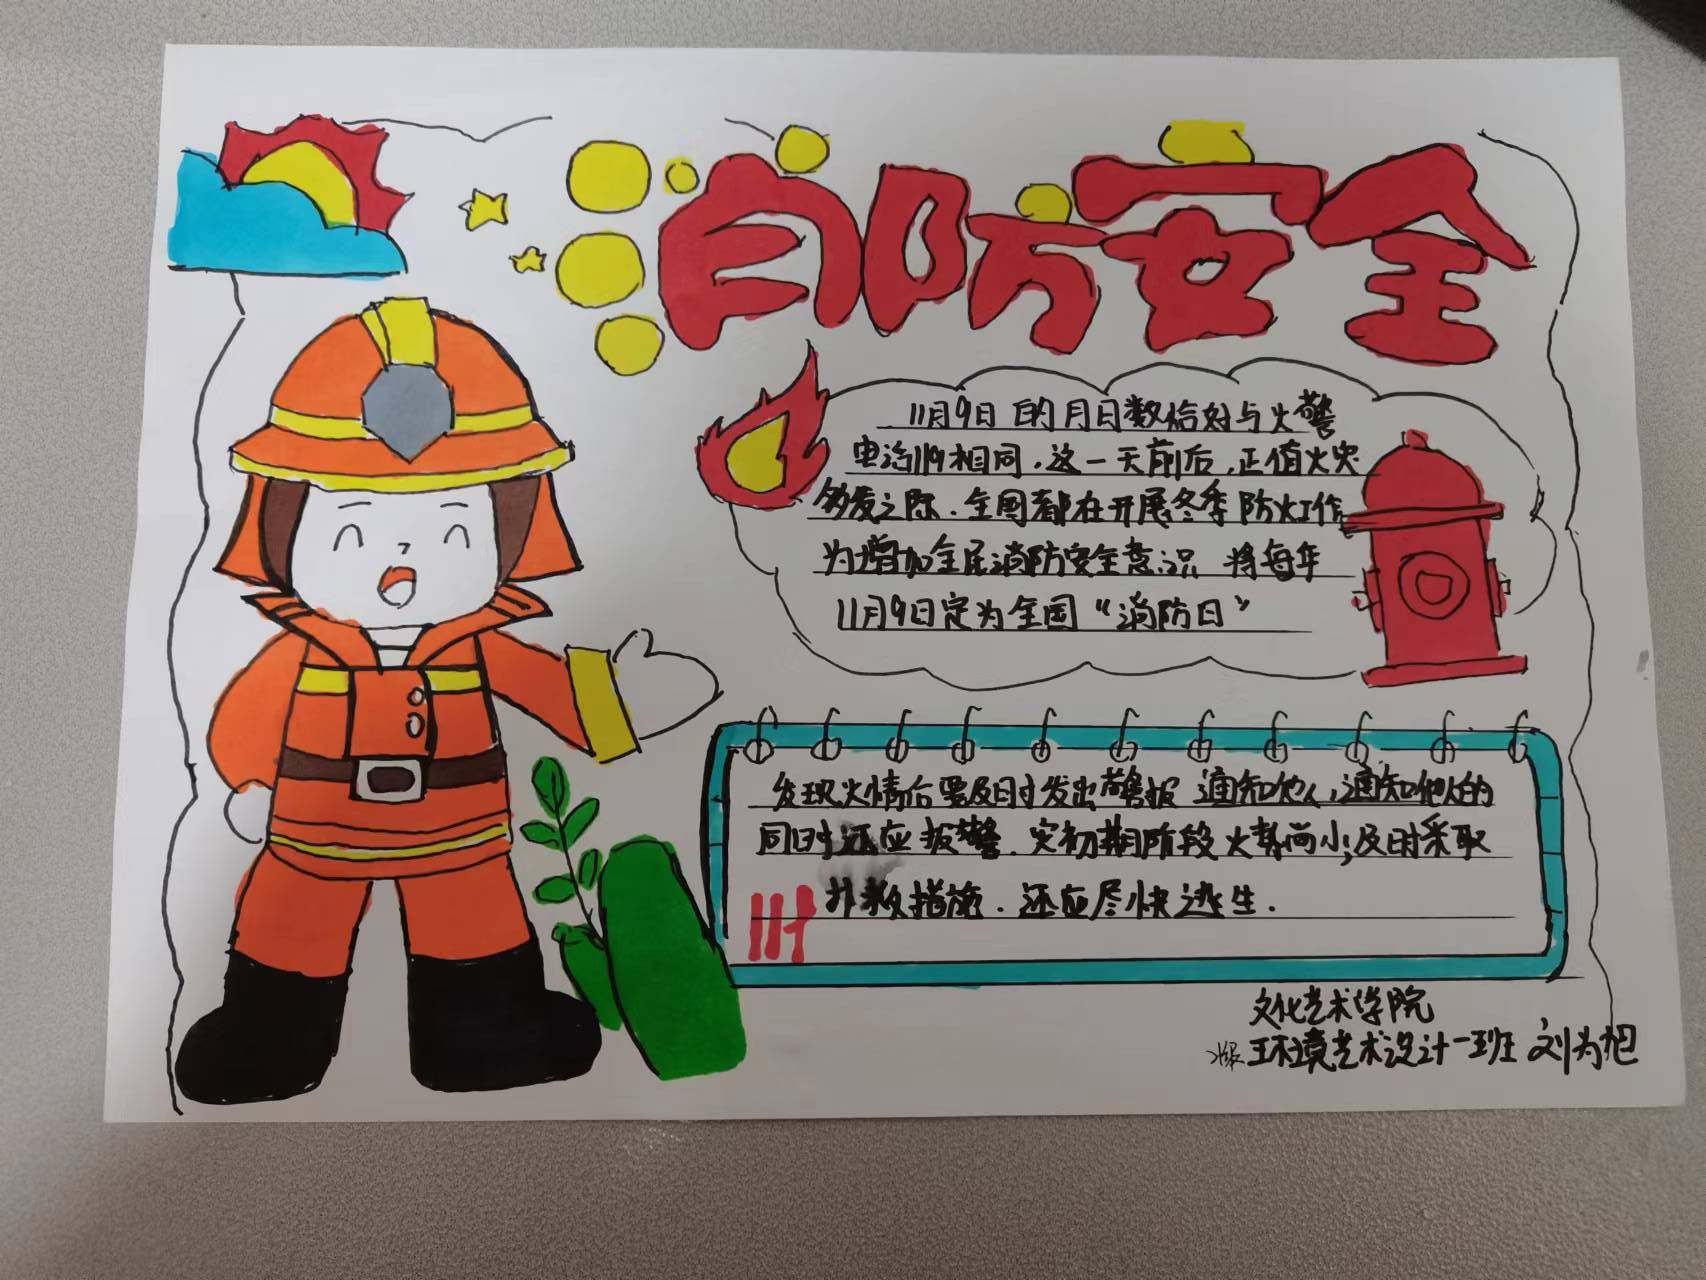 自防安全
11月9日的月日数恰好与火警
电话119相同，这一天前后，正值火灾
多发之际．全国都在开展冬季防火工作
为增加全民消防安全意识 将每年
11月9日定为全国“消防日”
发现火情后要及时发出警报 通知他人，通知他人的
同时还应报警．灾初期阶段火势尚小；及时采取
扑救措施．还应尽快逃生．
文化艺术学院
环境艺术设计一班 刘为旭